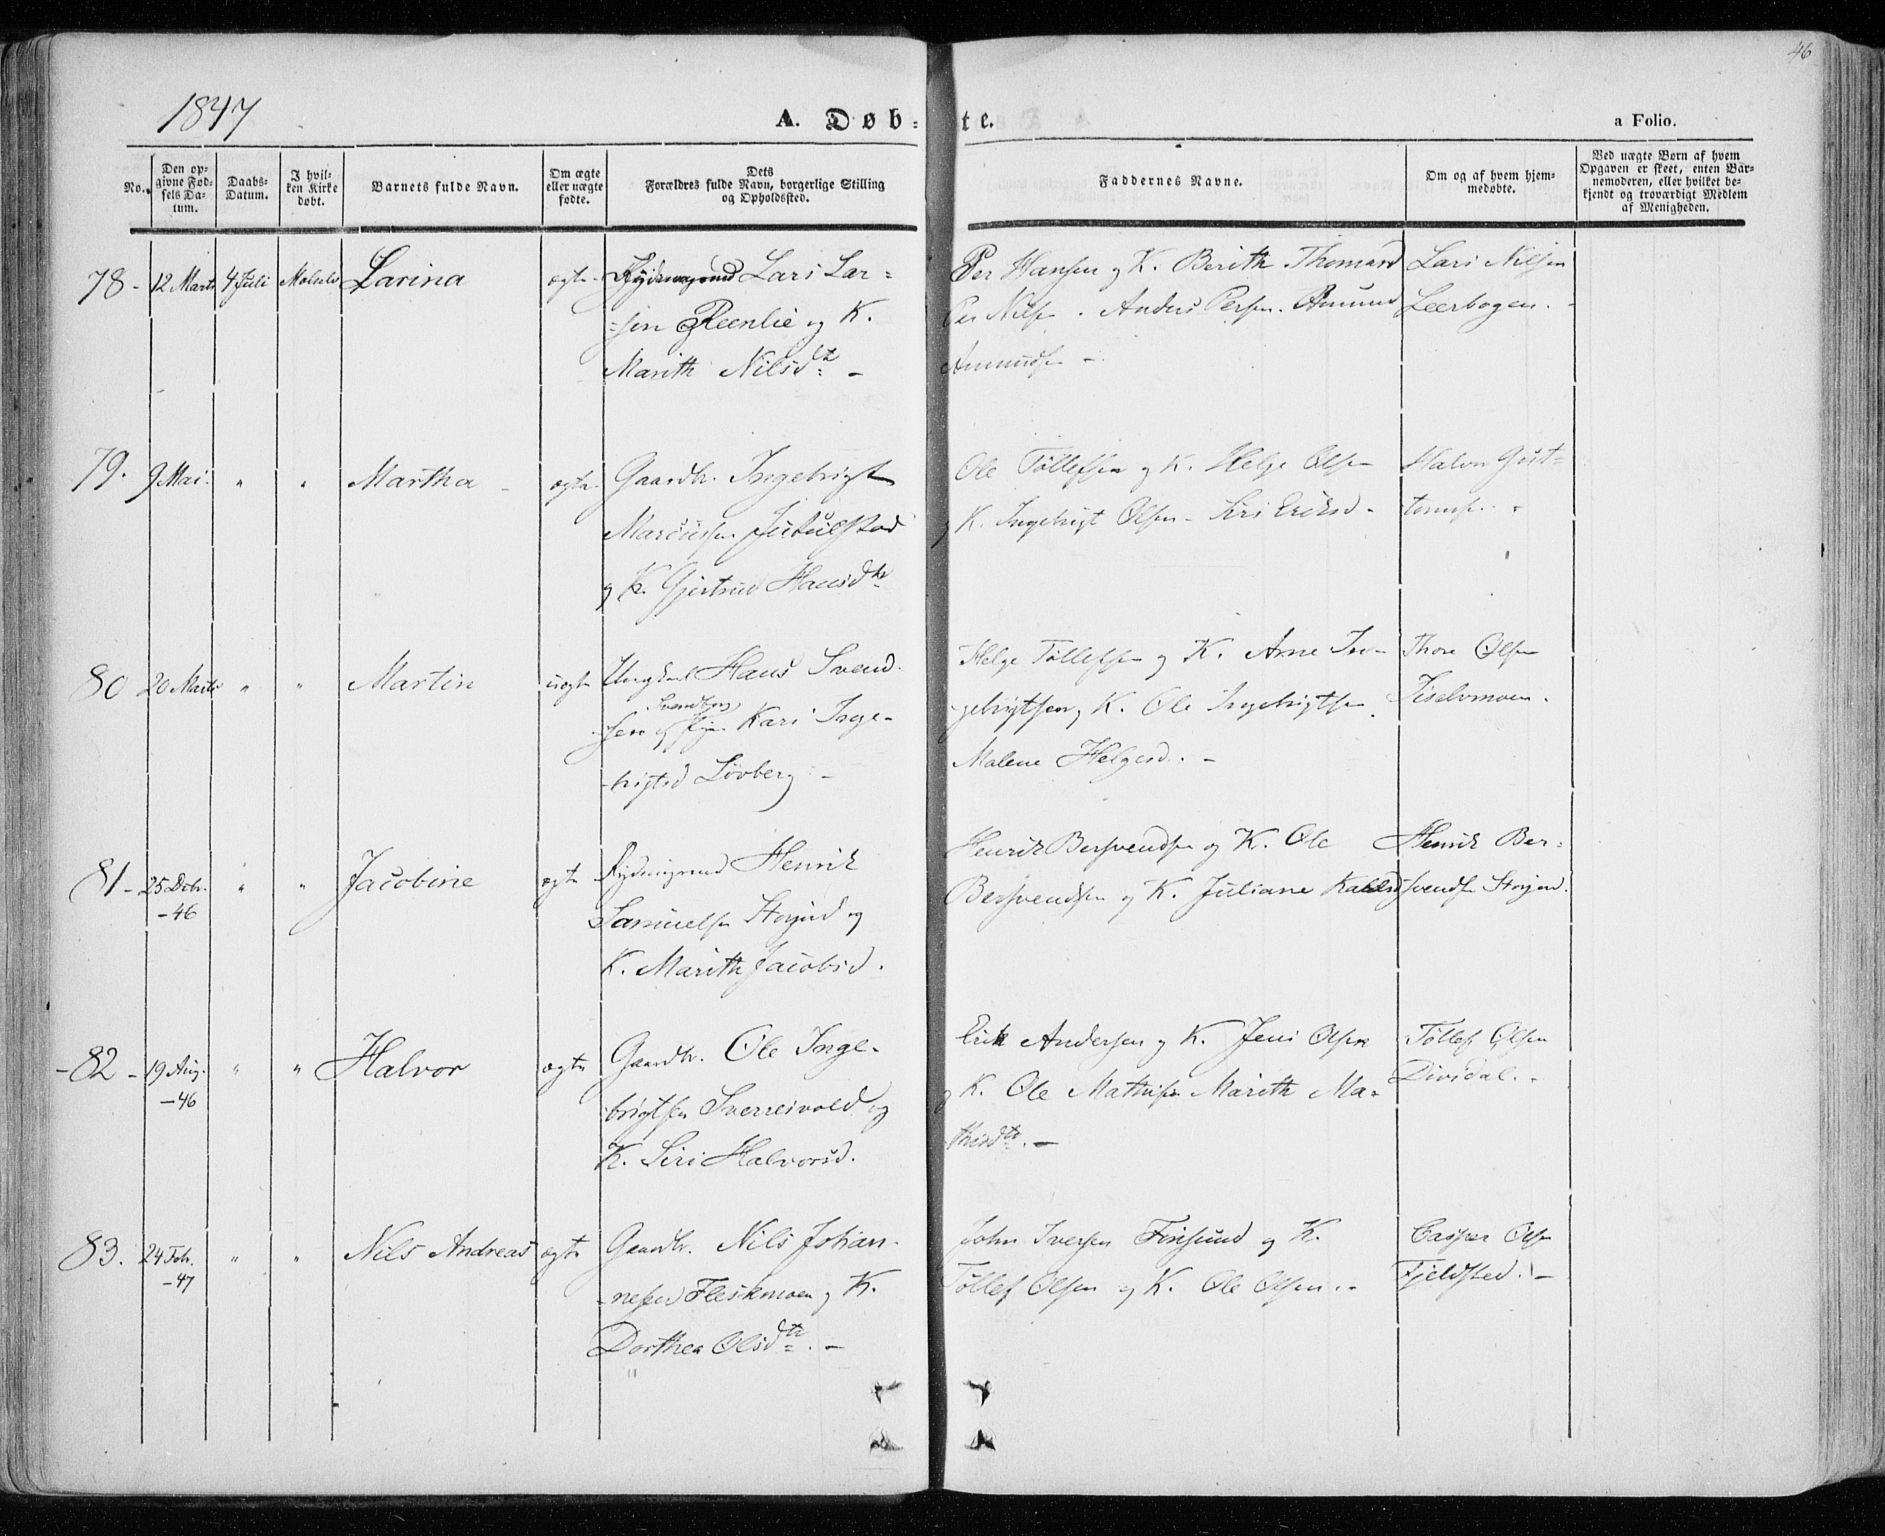 46
1847
A. Døb-te.
a Folio.
No.
Den opgivne Fødsels Datum.
Daabs-Datum.
I hvilken Kirke døbt.
Barnets fulde Navn.
Om ægte eller uægte fødte.
Dets Forældres fulde Navn, borgerlige Stilling og Opholdssted.
Faddernes Navne.
Om og af hvem hjemmedøbte.
Ved uægte Børn af hvem Opgaven er skeet, enten Barnemoderen, eller hvilket bekjendt og troværdigt Medlem af Menigheden.
78 - 12 Marts 4 Juli Maalselv Larina ægte Rydningsmd Lars Lar=
=sen Reenlie og K.
Marith Nilsdt. -
Per Hansen og K. Berith Thomasd
Per Nilsen . Anders Persen. Amund
Amundsen -
Lars Nilsen
Leerbogen. -
79. 9 Mai. " " Martha - ægte Gaardbr. Ingebrigt
Marcussen Jutulstad
og K. Gjertrud Hansdtr
Ole Tøllefsen og K. Helge Olsen
og K. Ingebrigt Olsen - Siri Eriksd -
Halvor Gut-
tormsen. -
80 20 Marts " " Martin uægte Ungkarl Hans Svend-
sen Svendborg og Pige Kari Inge-
brigtsd Løvberg -
Helge Tøllefsen og K. Arne In-
gebrigtsen og K. Ole Ingebrigtsen.
Malene Helgesd. -
Thore Olsen
81 - 25 Dcbr. -46 " " Jacobine ægte Rydningsmd Henrik
Samuelsen Storjord og
K. Marith Jacobsd.
Henrik Bersvendsen og K. Ole
Bersvendsen og K. Juliane
Henrik Ber-
svendsen Storjord.
- 82 - 19 Aug. -46 " " Halvor ægte Gaardbr. Ole Inge-
brigtsen Sverresvold og
K. Siri Halvorsd.
Erik Andersen og K. Jens Olsen
og K. Ole Mathisen Marith Ma-
thisdtr. -
Tøllef Olsen
Dividal. -
83. 24 Febr. -47 " " Nils Andreas ægte Gaardbr. Nils Johan-
nesen Fleskmoen og K.
Dorthea Olsdtr. -
John Iversen Finsund og K.
Tøllef Olsen og K. Ole Olsen. -
Casper Olsen
Fjeldsted. -